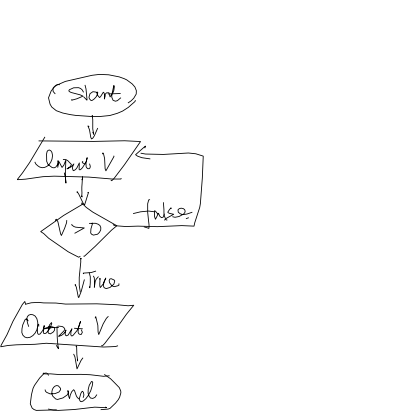 Start
Input V
false
V>0
True
Output V
end